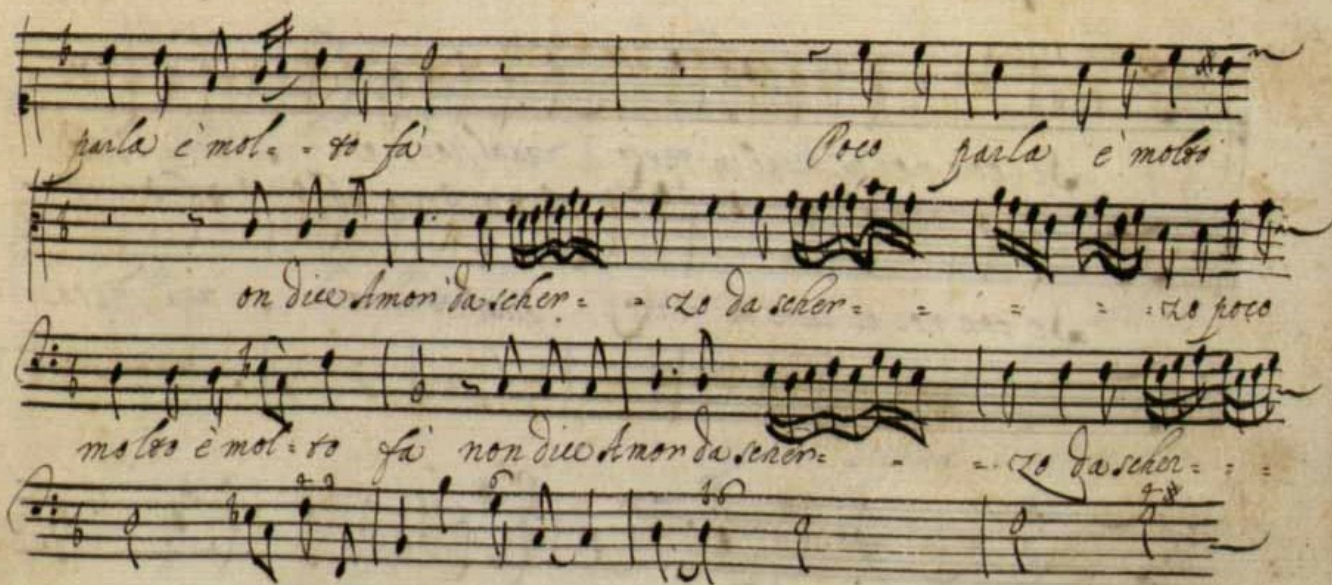 parla è mol= = to fà Poco parla è molto
on dice Amor da scher= = zo da scher= = = = =zo poco
molto è mol= to fà non dice Amor da scher= = = zo da scher= = =